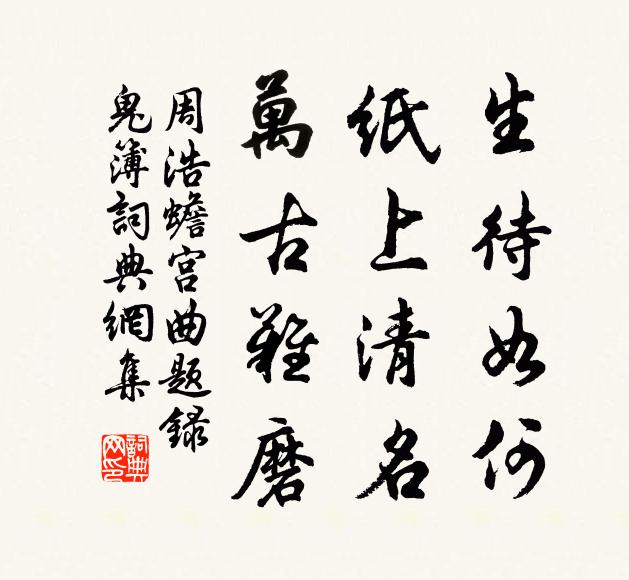 生待如何
紙上清名
萬古難磨
周浩蟾宮曲題録
鬼簿詞典網集
詞典
网印